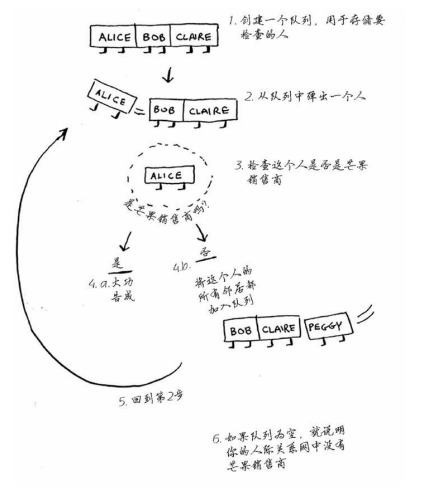 ALICE BOB CLAIRE
1. 创建一个队列，用于存储要
检查的人
ALICE
BOB CLAIRE
2. 从队列中弹出一个人
ALICE
是芒果销售商吗？
3. 检查这个人是否是芒果
销售商
是
4.a. 大功
告成
否
4.b.
将这个人的
所有邻居都
加入队列
BOB CLAIRE PEGGY
5. 回到第2步
6. 如果队列为空，就说明
你的人际关系网中没有
芒果销售商